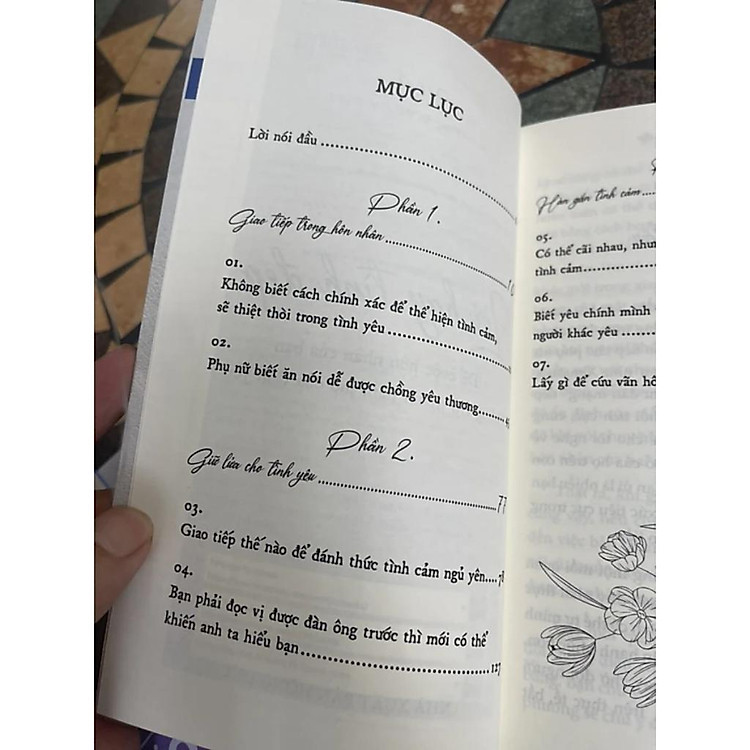 MỤC LỤC
Lời nói đầu
Phần 1.
Giao tiếp trong hôn nhân
01.
Không biết cách chính xác để thể hiện tình cảm,
sẽ thiệt thòi trong tình yêu
02.
Phụ nữ biết ăn nói dễ được chồng yêu thương
Phần 2.
Giữ lửa cho tình yêu 77
03.
Giao tiếp thế nào để đánh thức tình cảm ngủ yên 78
04.
Bạn phải đọc vị được đàn ông trước thì mới có thể
khiến anh ta hiểu bạn 127
Hàn gắn tình cảm
05.
Có thể cãi nhau, như
tình cảm
06.
Biết yêu chính mình
người khác yêu
07.
Lấy gì để cứu vãn hô